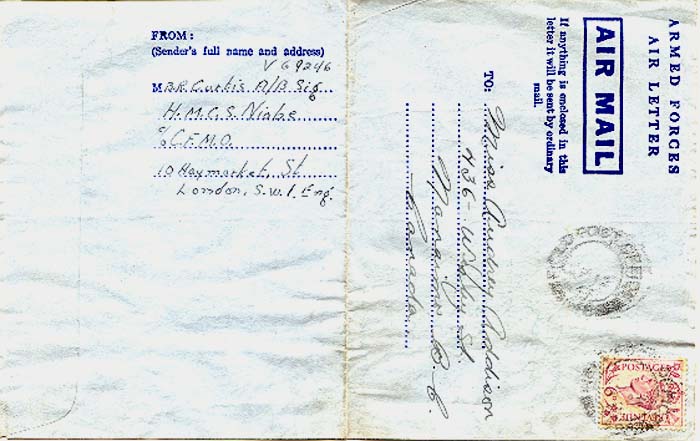 FROM:
(Sender's full name and address)
V 69246
M B.R. Curtis A/B Sig
H.M.C.S. Niobe
c/o C.F.M.O.
10 Haymarket, St
London, S.W.1. Eng.
ARMED FORCES
AIR LETTER
AIR MAIL
If anything is enclosed in this
letter it will be sent by ordinary
mail.
TO:
Miss Audrey Addison
436 - St.
Nanaimo B.C.
Canada
POST OFFICE
POSTAGE
REVENUE